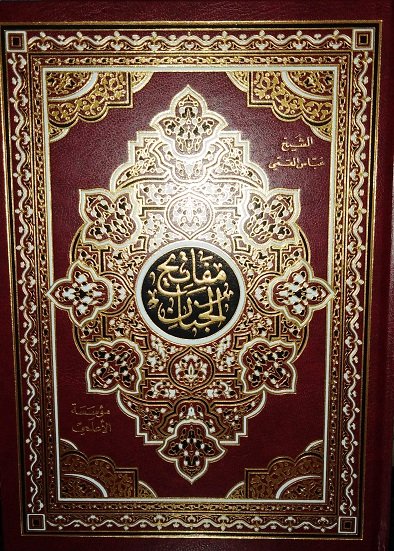 الشيخ
عباس القمي
مفاتيح
الجنان
مؤسسة
الأعلمي